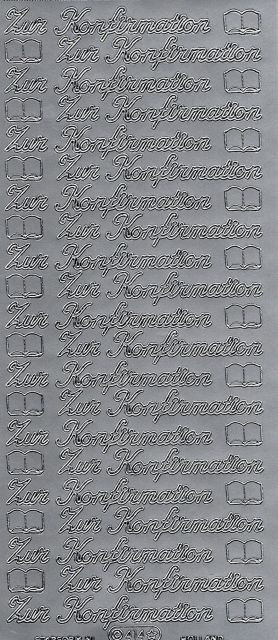 Zur Konfirmation
Zur Konfirmation
Zur Konfirmation
Zur Konfirmation
Zur Konfirmation
Zur Konfirmation
Zur Konfirmation
Zur Konfirmation
Zur Konfirmation
Zur Konfirmation
Zur Konfirmation
Zur Konfirmation
Zur Konfirmation
Zur Konfirmation
Zur Konfirmation
Zur Konfirmation
Zur Konfirmation
Zur Konfirmation
Zur Konfirmation
Zur Konfirmation
Zur Konfirmation
HOLLAND